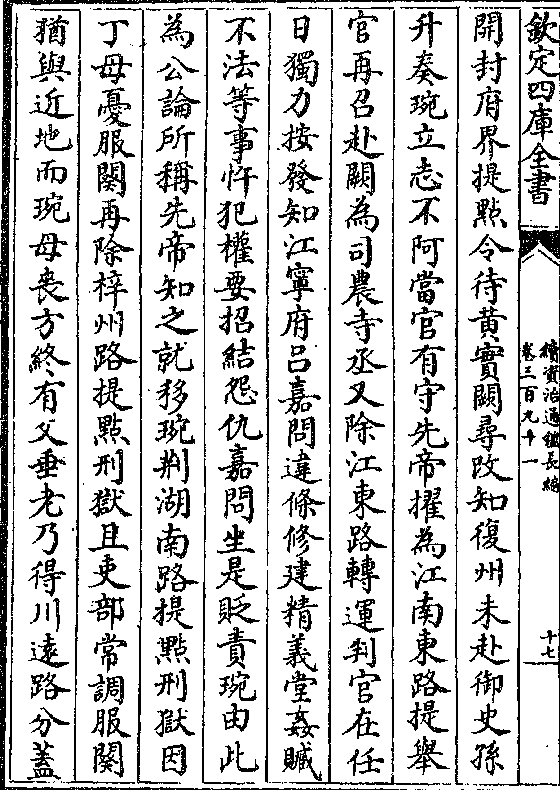 欽定四庫全書
續資治通鑑長編
卷三百九十一
十七
開封府界提點令待黄實闕尋改知復州未赴御史孫
升奏琬立志不阿當官有守先帝擢為江南東路提舉
官再召赴闕為司農寺丞又除江東路轉運判官在任
日獨力按發知江寧府吕嘉問違條修建精義堂姦贓
不法等事忤犯權要招結怨仇嘉問坐是貶責琬由此
為公論所稱先帝知之就移琬荆湖南路提㸃刑獄因
丁母憂服闋再除梓州路提㸃刑獄且吏部常調服闋
猶與近地而琬母喪方終有父垂老乃得川遠路分蓋